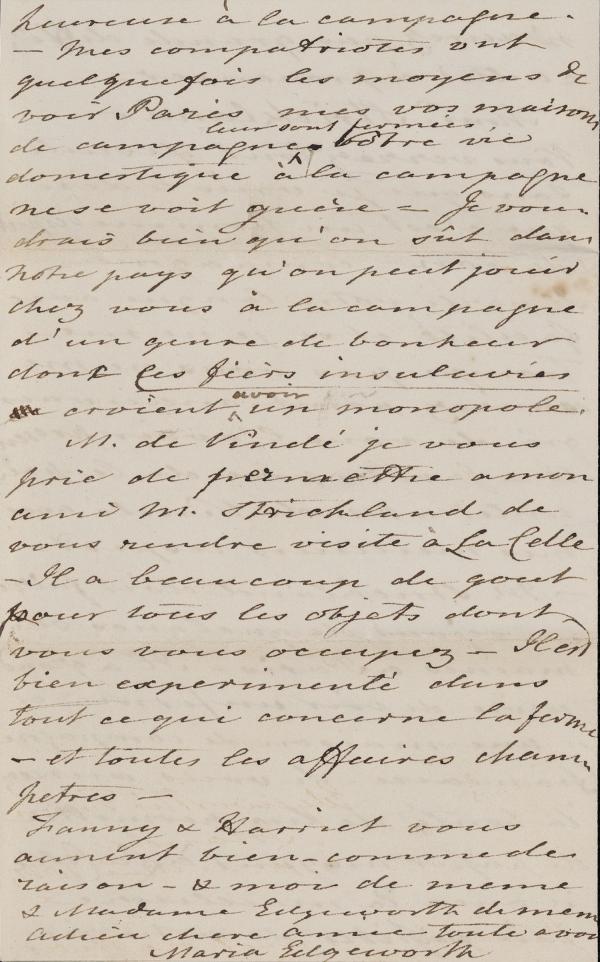 heureuse à la campagne.
— Mes compatriotes ont
quelquefois les moyens de
voir Paris mes vos maisons
leur sont fermées
de campagne votre vie
domestique à la campagne
ne se voit guère = Je vou-
drais bien qu'on sût dans
notre pays qu'on peut jouir
chez vous à la campagne
d'un genre de bonheur
dont les fiers insulaires
avoir
croient un monopole.
M. de Vindé je vous
prie de permettre a mon
ami M. Strickland de
vous rendre visite à La Celle
— Il a beaucoup de gout
pour tous les objets dont
vous vous occupez — Il est
bien experimenté dans
tout ce qui concerne la ferme
— et toutes les affaires cham-
petres —
Fanny & Harriet vous
aiment bien — comme de
raison — & moi de meme
& Madame Edgeworth de mem
adieu chere amie toute a vou
Maria Edgeworth